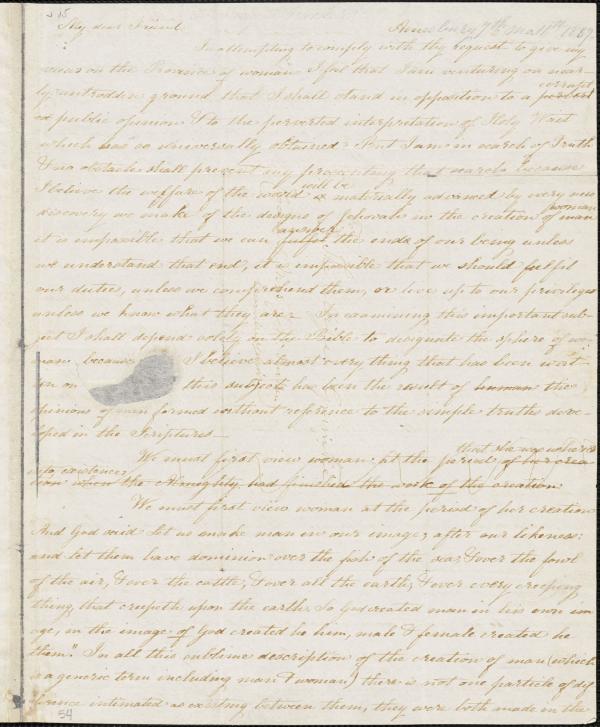 My dear Friend Amesbury 7th Mo 11th 1837
In attempting to comply with thy request to give my
views on the Province of woman I feel that I am venturing on near-
ly untrodden ground, that I shall stand in opposition to a corrupt
ed public opinion & to the perverted interpretation of Holy Writ
which has so universally obtained. But I am in search of Truth
& no obstacle shall prevent my prosecuting that search because
I believe the welfare of the world will be materially advanced by every new
discovery we make of the designs of Jehovah in the creation of woman
it is impossible that we can answer fulfil the ends of our being unless
we understand that end, it is impossible that we should fulfil
our duties, unless we comprehend them, or live up to our privileges
unless we know what they are. In examining this important sub-
ject I shall depend solely on the Bible to designate the sphere of wo-
man because I believe almost every thing that has been writ
ten on this subject has been the result of human the
opinions of man formed without reference to the simple truths deve-
loped in the Scriptures—
We must first view woman at the period that she was ushered
into existence of her crea
tion when the Almighty had finished the work of the creation
We must first view woman at the period of her creation
"And God said Let us make man in our image, after our likeness:
and let them have dominion over the fish of the sea, & over the fowl
of the air, & over the cattle, & over all the earth, & over every creeping
thing, that creepeth upon the earth. So God created man in his own im
age, in the image of God created he him, male & female created he
them". In all this sublime description of the creation of man (which
is a generic term including man & woman) there is not one particle of dif
ference intimated as existing between them, they were both made in the
54